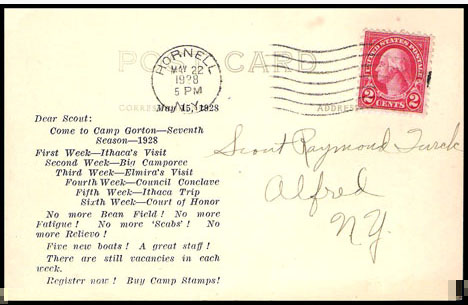 POST CARD
HORNELL
MAY 22
1928
5 PM
N.Y.
UNITED STATES POSTAGE
2 CENTS 2
May 15, 1928
ADDRESS
Dear Scout:
Come to Camp Gorton—Seventh
Season—1928
First Week—Ithaca's Visit
Second Week—Big Camporee
Third Week—Elmira's Visit
Fourth Week—Council Conclave
Fifth Week—Ithaca Trip
Sixth Week—Court of Honor
No more Bean Field! No more
Fatigue! No more 'Scabs'! No
more Relievo!
Five new boats! A great staff!
There are still vacancies in each
week.
Register now! Buy Camp Stamps!
Scout Raymond Turck
Alfred
N.Y.